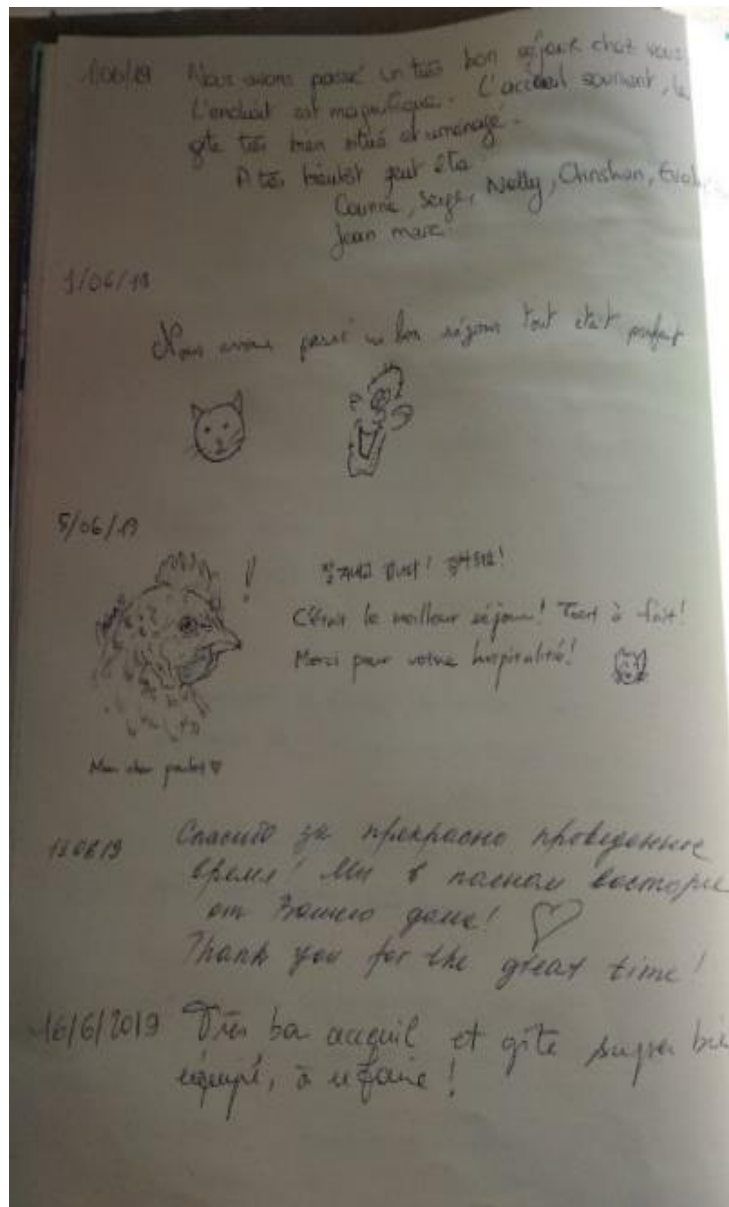 Nous avons passé un très bon séjour chez vous
L'endroit est magnifique. L'accueil souriant, le
gîte très bien situé et aménagé.
A très bientôt peut etre
Corinne, Serge, Nelly, Christian,
Jean marc
9/06/19
Nous avons passé un bon séjour tout etait parfait
5/06/19
!
잘 지내고 갑니다! 감사해요!
C'était le meilleur séjour! Tout à fait!
Merci pour votre hospitalité!
Mon cher poulet ♡
Спасибо за прекрасно проведенное
время! Мы в полном восторге
от Вашего дома! ♡
Thank you for the great time!
16/6/2019 Très bon accueil et gîte super bie
équipé, à refaire!